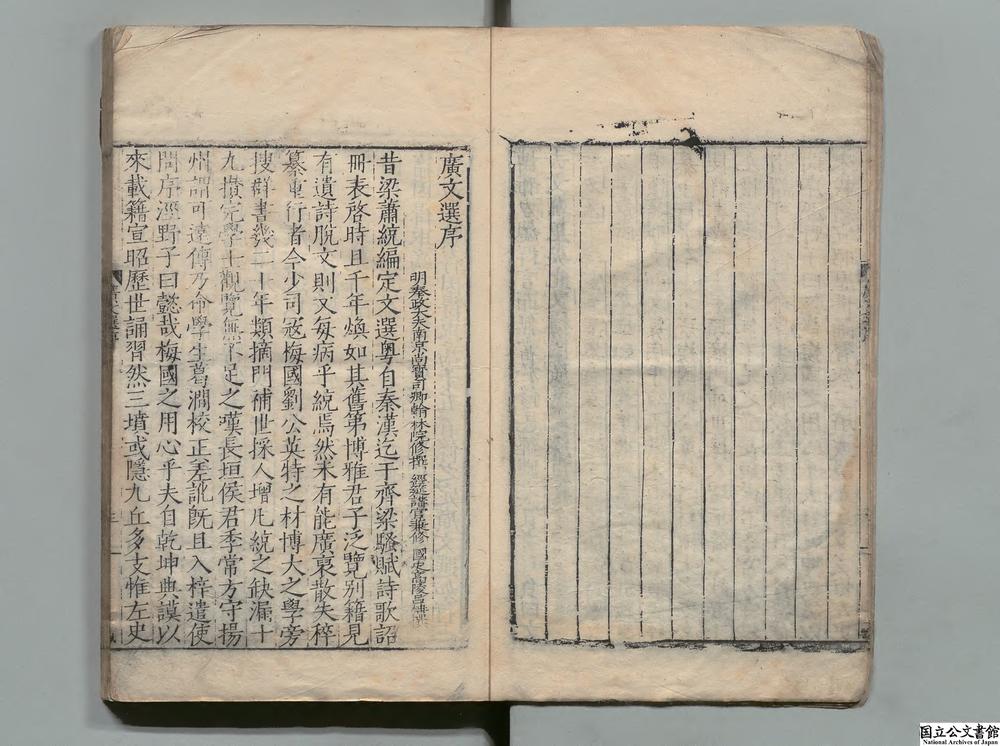 廣文選序
明奉政大夫南京尚寶司卿翰林院修撰 經筵講官兼修 國史高陵呂柟撰
昔梁蕭統編定文選粵自秦漢迄于齊梁騷賦詩歌詔
冊表啓時且千年煥如其舊第博雅君子泛覽別籍見
有遺詩脫文則又每病乎統焉然未有能廣裒散失稡
纂重行者今少司寇梅國劉公英特之材博大之學旁
搜群書幾二十年類摘門補世採人增凡統之缺漏十
九攢完學士觀覽無不足之嘆長垣侯君季常方守揚
州謂可遠傳乃命學生葛澗校正差訛既且入梓遣使
問序涇野子曰懿哉梅國之用心乎夫自乾坤典謨以
來載籍宣昭歷世誦習然三墳或隱九丘多支惟左史
廣文選序
国立公文書館
National Archives of Japan